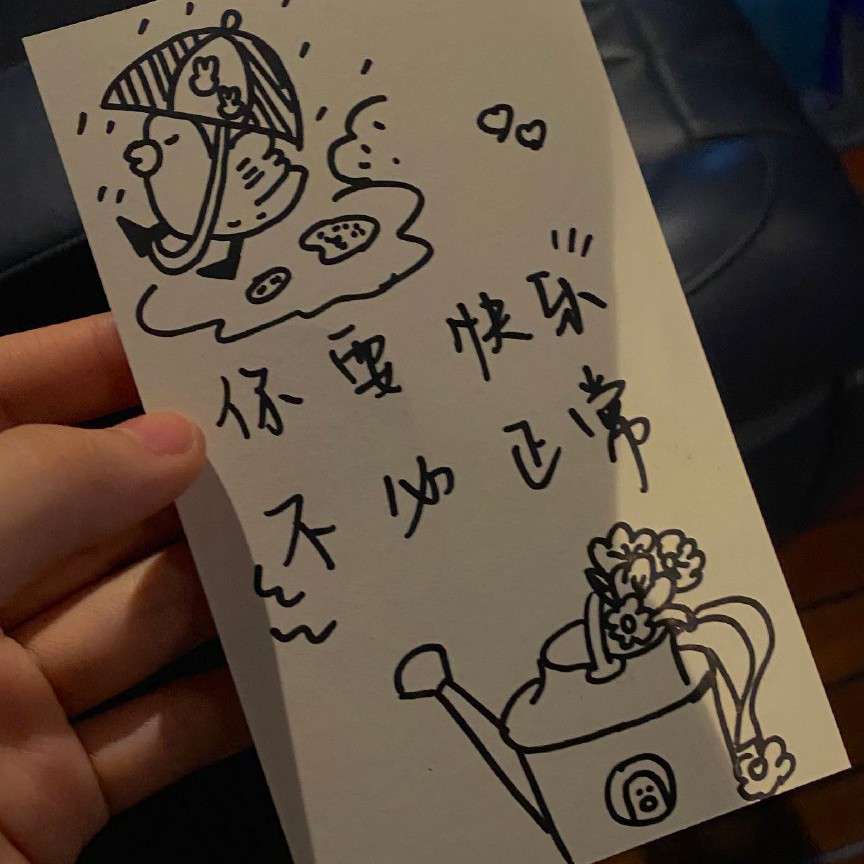 你要快乐
不必正常